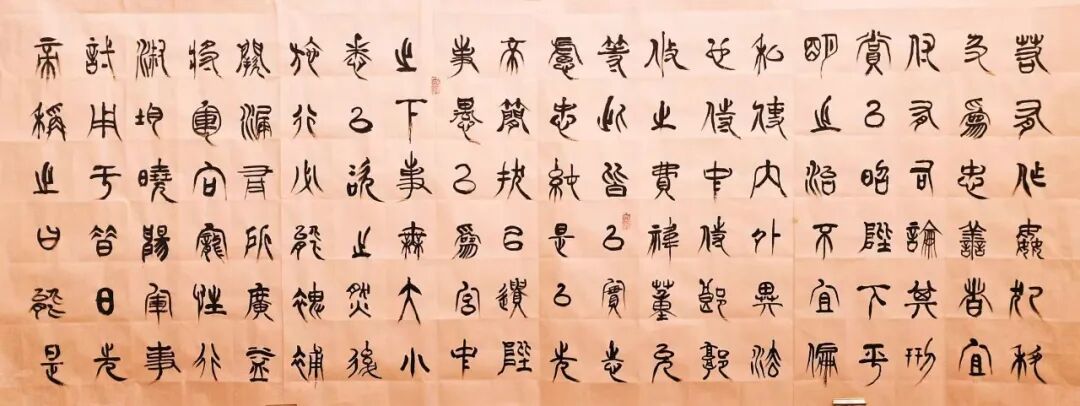 若有作姦犯科
及為忠善者宜
付有司論其刑
賞以昭陛下平
明之治不宜偏
私使內外異法
也侍中侍郎郭
攸之費禕董允
等此皆以實志
慮忠純是以先
帝簡拔以遺陛
事愚以為宮中
之下事無大小
悉以諮之然後
施行必能裨補
闕漏有所廣益
將軍向寵性行
淑均曉暢軍事
試用于昔日先
帝稱之曰能是